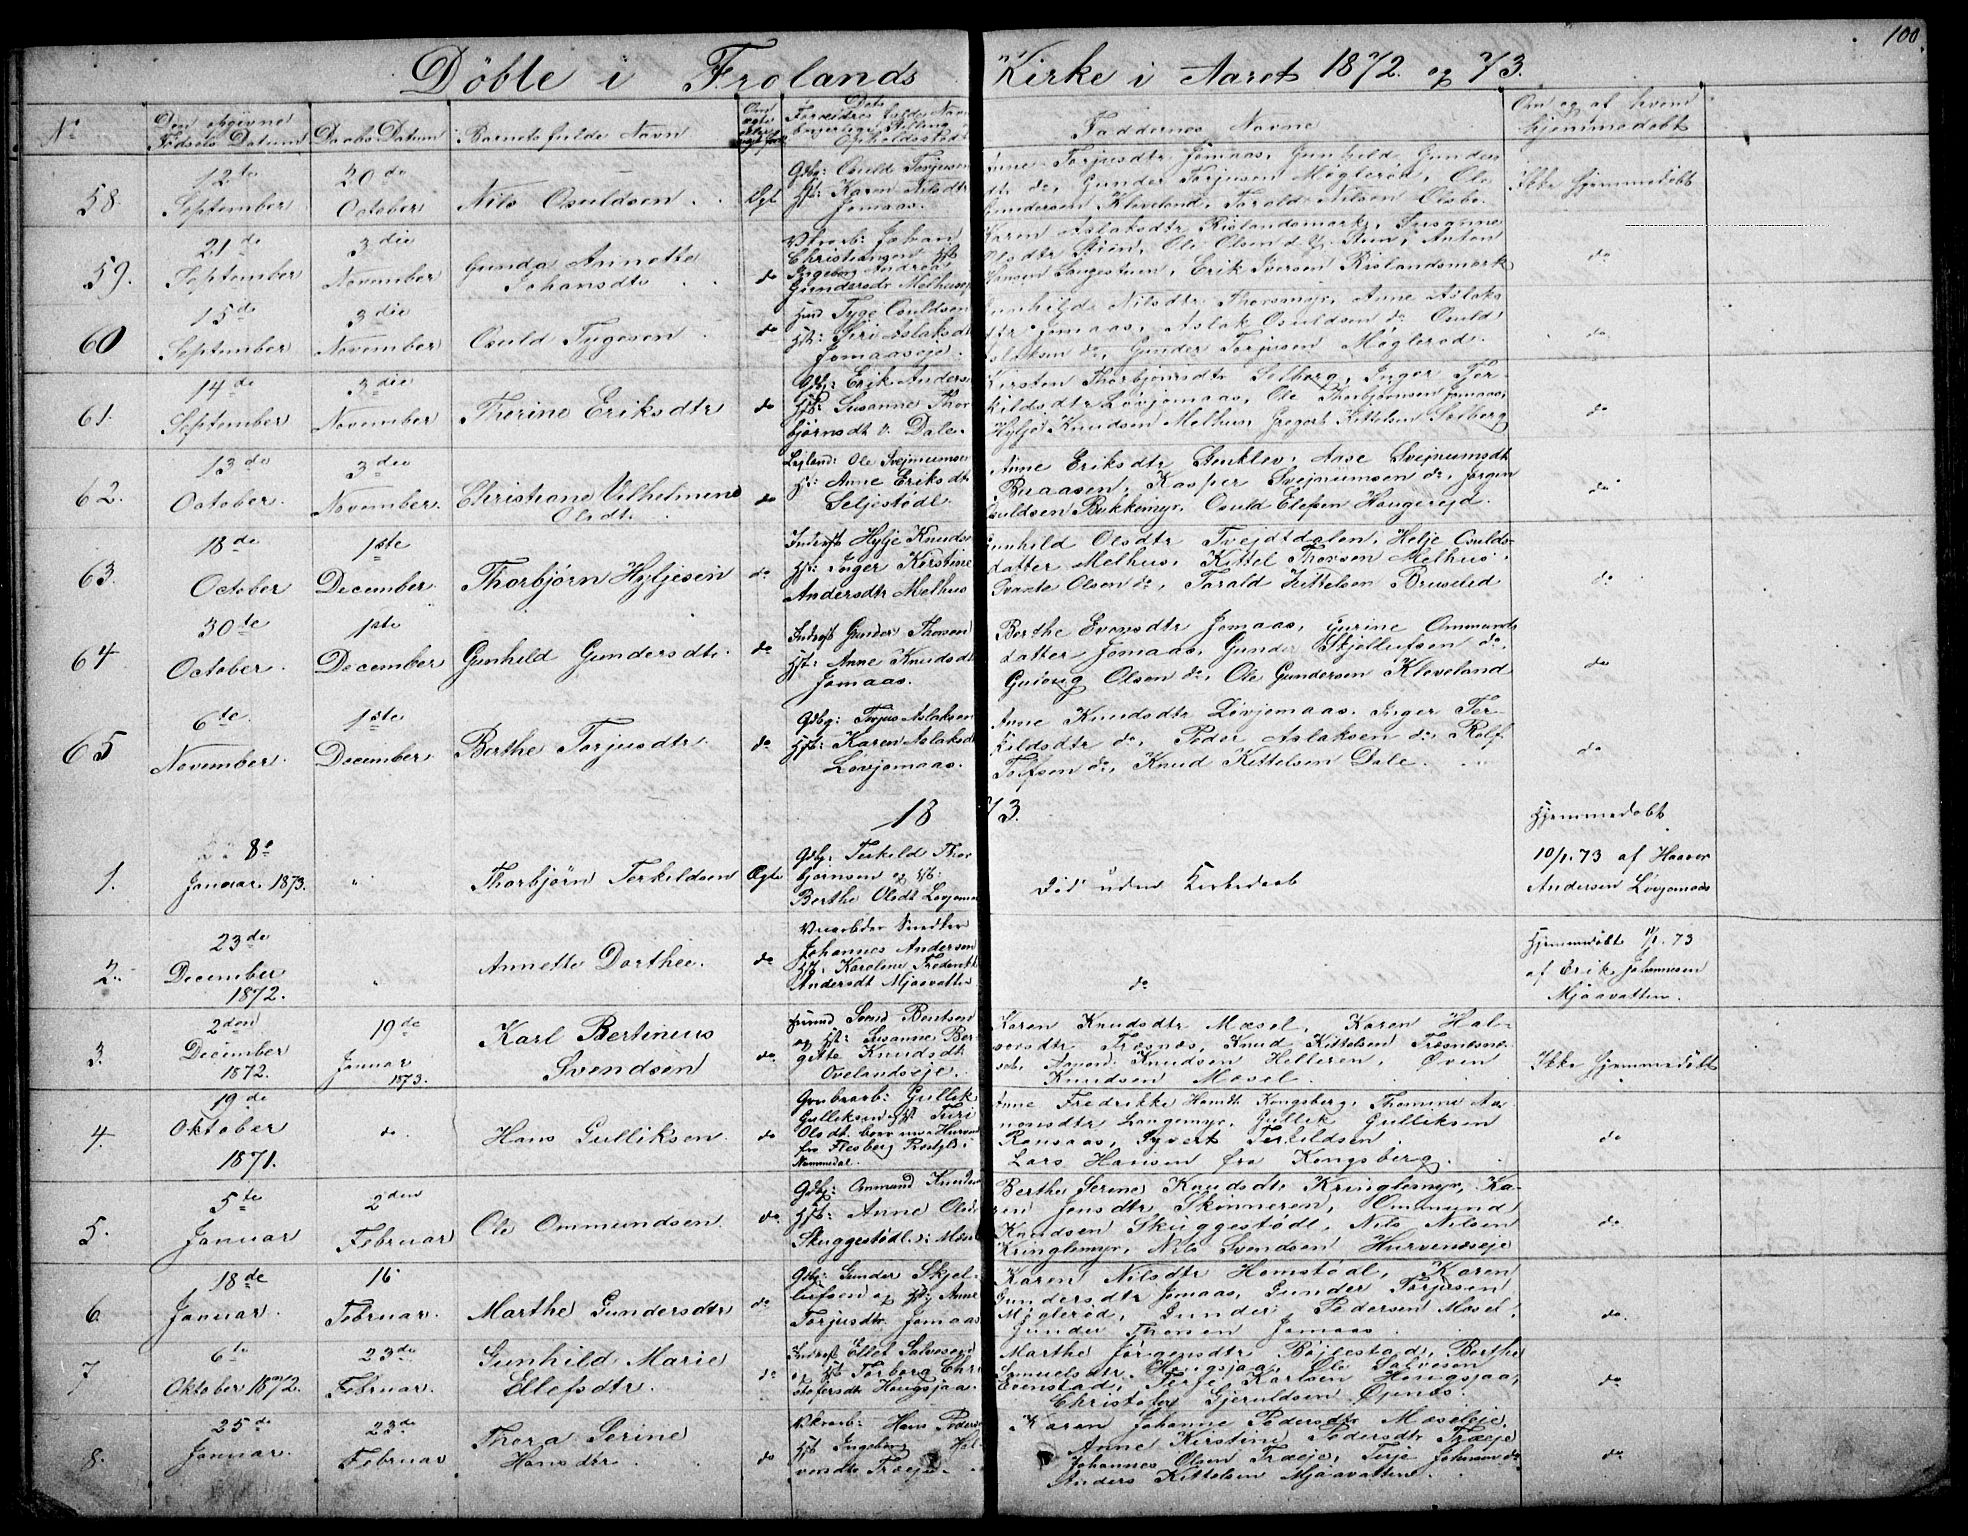 100.
Döbte i Frolands Kirke i Aaret 1872. og 73.
No
Den Nöivne Födsels Datum
Daabs Datum
Barnets fulde Navn
Om ægte eller uægte født
Dets Forældres fulde Navn borgerlige Stilling Opholdssted
Faddernes Navne
Om og af hvem hjemmedøbt
58.
12te September
20de October
Nils Osuldsen
Ægt
Gdbg: Osuld Torjusen
Hst: Karen Nilsdtr
Jomaas.
Anne Torjusdtr Jomaas, Gunhild Gunders
dtr do, Gunder Torjusen Møglerød, Ole
Gundersen Kleveland, Tarald Nilsen Osebo.
Ikke hjemmedøbt
59.
21de September
3die November
Gunda Annette
Johansdtr
do
Johan
Christiansen Hst
Ingeborg Andrea
Gundersdtr Melhuseje
Karen Aslaksdtr Rislandsmark, Susanne
Olsdtr Stien, Ole Olsen d. y. Stien, Anton
Hansen Langestuen, Erik Iversen Rislandsmark
do
60
15de September
3die November
Osuld Tygesen
do
Huusd Tyge Osuldsen
Hst: Siri Aslaksdt
Jomaaseje.
Gunhilde Nilsdtr Thorsmyr, Anne Aslaks
dtr Jomaas, Aslak Osuldsen do Osuld
Aslaksen do, Gunder Torjusen Møglerød.
do
61.
14de September
3die November
Therine Eriksdtr
do
Gdbg: Erik Anders
Hst: Susanne Thor
bjørnsdt v. Dale.
Kirsten Thorbjörnsdtr Solberg, Inger Ter-
kildsdtr Løvjomaas, Ole Thorbjörnsen Jomaas,
Hyljë Knudsen Melhus, Gregert Kittelsen Solberg
do
62.
13de October.
3die November.
Christiane Vilhelmine
Olsdtr
do
Ole Svejnumsen
Hst: Anne Eriksdt
Seljestødl.
Anne Eriksdtr Stenklev, Aase Svejnumsdt
Buaasen, Kasper Svejnumsen do, Jørgen
Osuldsen Bukkemyr, Osuld Elefsen Haugerejd.
do
63.
18de October
1ste December
Thorbjørn Hyljesen
do
Inderst Hylje Knudse
Hst: Inger Kirstine
Andersdtr Melhus
Gunhild Olsdtr Tvejtdalen, Helje Osulds-
datter Melhus, Kittel Thorsen Melhus,
Svante Olsen do, Tarald Kittelsen Bruslid
do
64.
30te October.
1ste December
Gunhild Gundersdtr.
do
Inderst Gunder Thorsen
Hst: Anne Knudsdt
Jomaas.
Berthe Evensdtr Jomaas, Gurine Ommunds
datter Jomaas, Gunder Skjellufsen do,
Guiong Olsen do, Ole Gundersen Kleveland
do
65
6te November.
1ste December
Berthe Torjusdtr.
do
Gdbg: Torjus Aslaksen
Hst: Karen Aslaksdt
Lovjomaas.
Anne Knudsdtr Løvjomaas, Inger Ter-
kildsdtr do, Peder Aslaksen do, Rolf
do, Knud Kittelsen Dale.
do
1873.
1.
8de Januar 1873.
"
Thorbjörn Terkildsen
Ægte
Gdbg: Terkild Thor
bjornsen og Hst:
Berthe Olsdt Lovjomaas
Død uden Kirkedaab
Hjemmedøbt
10/1.73 af Haaver
Andersen Løvjomaas
2.
23de December 1872.
"
Annette Dorthee.
do
Johannes Andersen
Hst: Karoline Frederikke
Andersdt Mjaavatten
do
Hjemmedöbt 11/1.73
af Erik Johannesen
Mjaavatten.
3.
2den December 1872.
19de Januar 1873.
Karl Bertinius
Svendsen
do
Svend Bentsen
og Hst: Susanne Ber
gitte Knudsdt
Ovelandseje.
Karen Knudsdtr Mæsel, Karen Hal-
vorsdtr Træsnæs, Knud Kittelsen Træsnæs
Aanon Knudsen Helleren, Øven
Knudsen Mæsel.
Ikke hjemmedøbt
4
19de Oktober 1871.
do.
Hans Gulliksen.
do
Grubearb: Gullik
Gulliksen og Hst: Turi
Olsdt
fra Flesberg Præstgld i
Nummedal.
Anne Fredrikke Kongsberg, Thomine Aa-
nonsdtr Langemyr, Gullik Gulliksen
Ransaas, Syvert Terkildsen
Lars Hansen fra Kongsberg.
do
5.
5te Januar
2den Februar
Ole Ommundsen.
do.
Gdbg: Ommund Knudsen
Hst: Anne Olsd
Skuggestødl. i Mæsel
Berthe Serine Knudsdtr Kringlemyr, Ka-
ren Jensdtr Skinneren, Ommund
Knudsen Skuggestødl, Nils Nilsen
Kringlemyr, Nils Svendsen Hurvenæseje
do
6.
18de Januar.
16 Februar.
Marthe Gundersdtr
do
Gdbg: Gunder Skjel-
lufsen og Hst: Anne
Torjusdtr. Jomaas
Karen Nilsdtr Homstødl, Karen
Gundersdtr Jomaas, Gunder Torjusen
Myglerød, Gunder Pedersen Mæsel,
Gunder Thorsen Jomaas.
do.
7
6te Oktober 1872.
23de Februar.
Gunhild Marie
Ellefsdtr.
do
Inderst Ellef Salvesen
og Hst Torborg Chri
stofersdt Hougsjaa
Marthe Jørgensdtr Bøjlestad, Berthe
Samuelsdtr. Hougsjaa, Ole Salvesen
Evenstad, Terje Karlsen Hougsjaa,
Christofer Gjeruldsen Øynæs.
do
8.
25de Januar.
23de Februar
Thora Serine
Hansdtr.
do
Hans Peders
Hst Ingeborg Hal-
vorsdtr Træeje.
Karen Johanne Pedersdtr Mæseleje,
Anne Kirstine Pedersdtr Træeje
Johannes Olsen Træeje, Terje Johnsen do
Anders Kittelsen Mjaavatten.
do